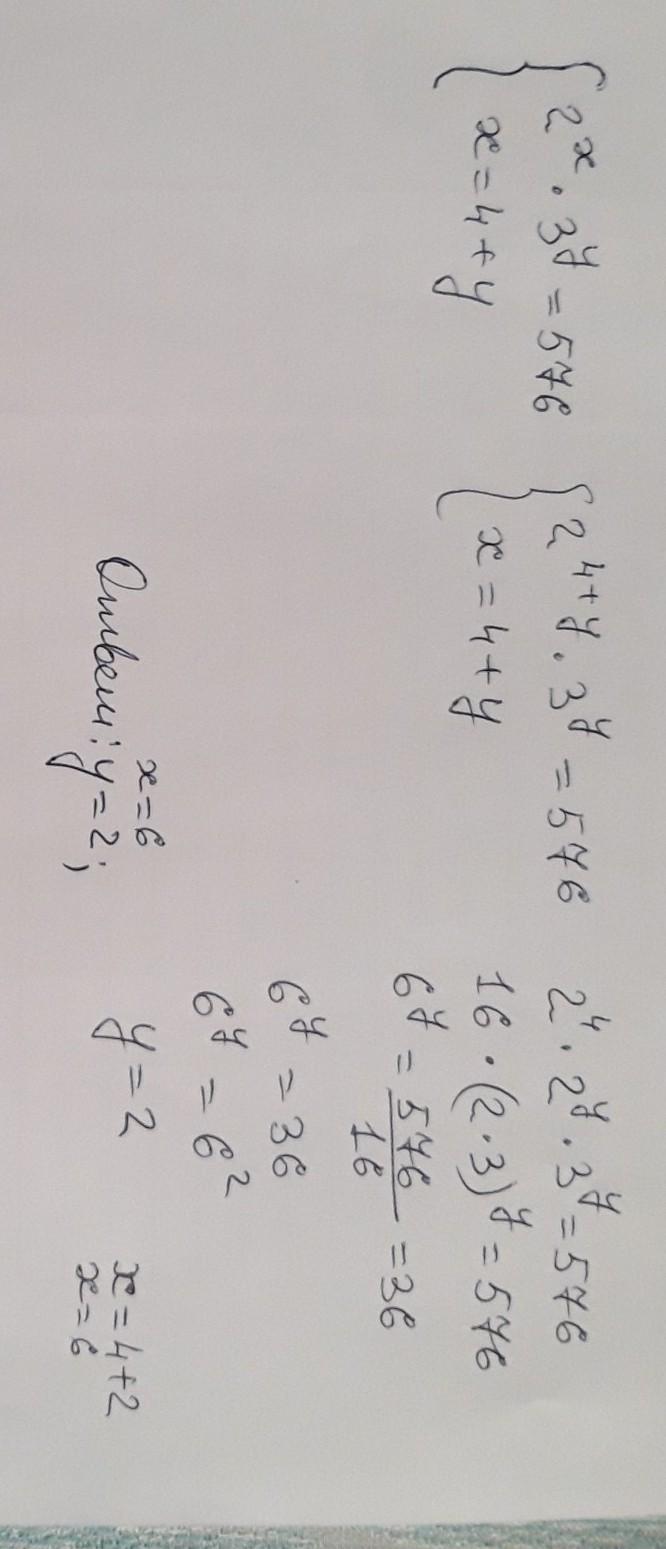 { 2^x · 3^y = 576
x = 4 + y
{ 2^{4+y} · 3^y = 576
x = 4 + y
2^4 · 2^y · 3^y = 576
16 · (2·3)^y = 576
6^y = 576/16 = 36
6^y = 36
6^y = 6^2
y = 2
x = 4+2
x = 6
x = 6
Ответ: y = 2;